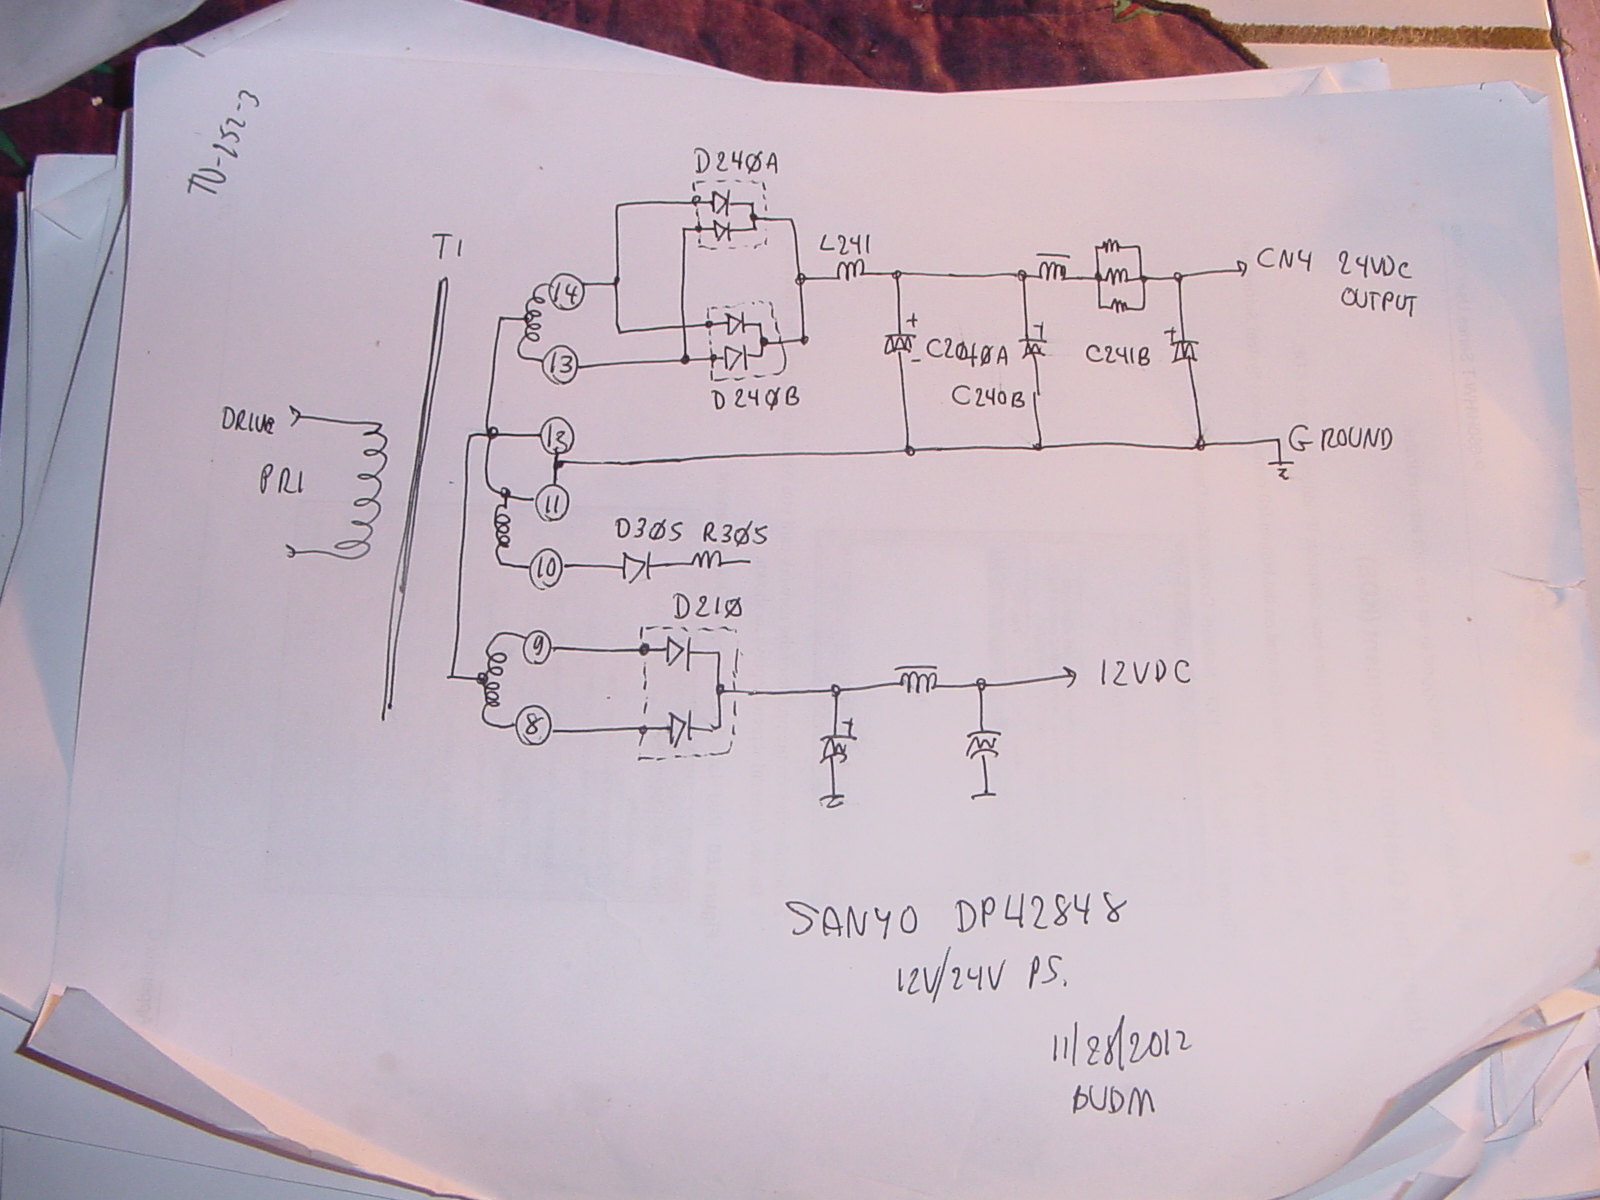 TU-252-3
D240A
T1
L241
CN4 24VDC
OUTPUT
14
13
+
+
+
-
C2040A
C241B
C240B
D240B
DRIVE
PRI
12
GROUND
11
D305 R305
10
D210
9
12VDC
8
+
SANYO DP42848
12V/24V PS.
11/28/2012
BUDM